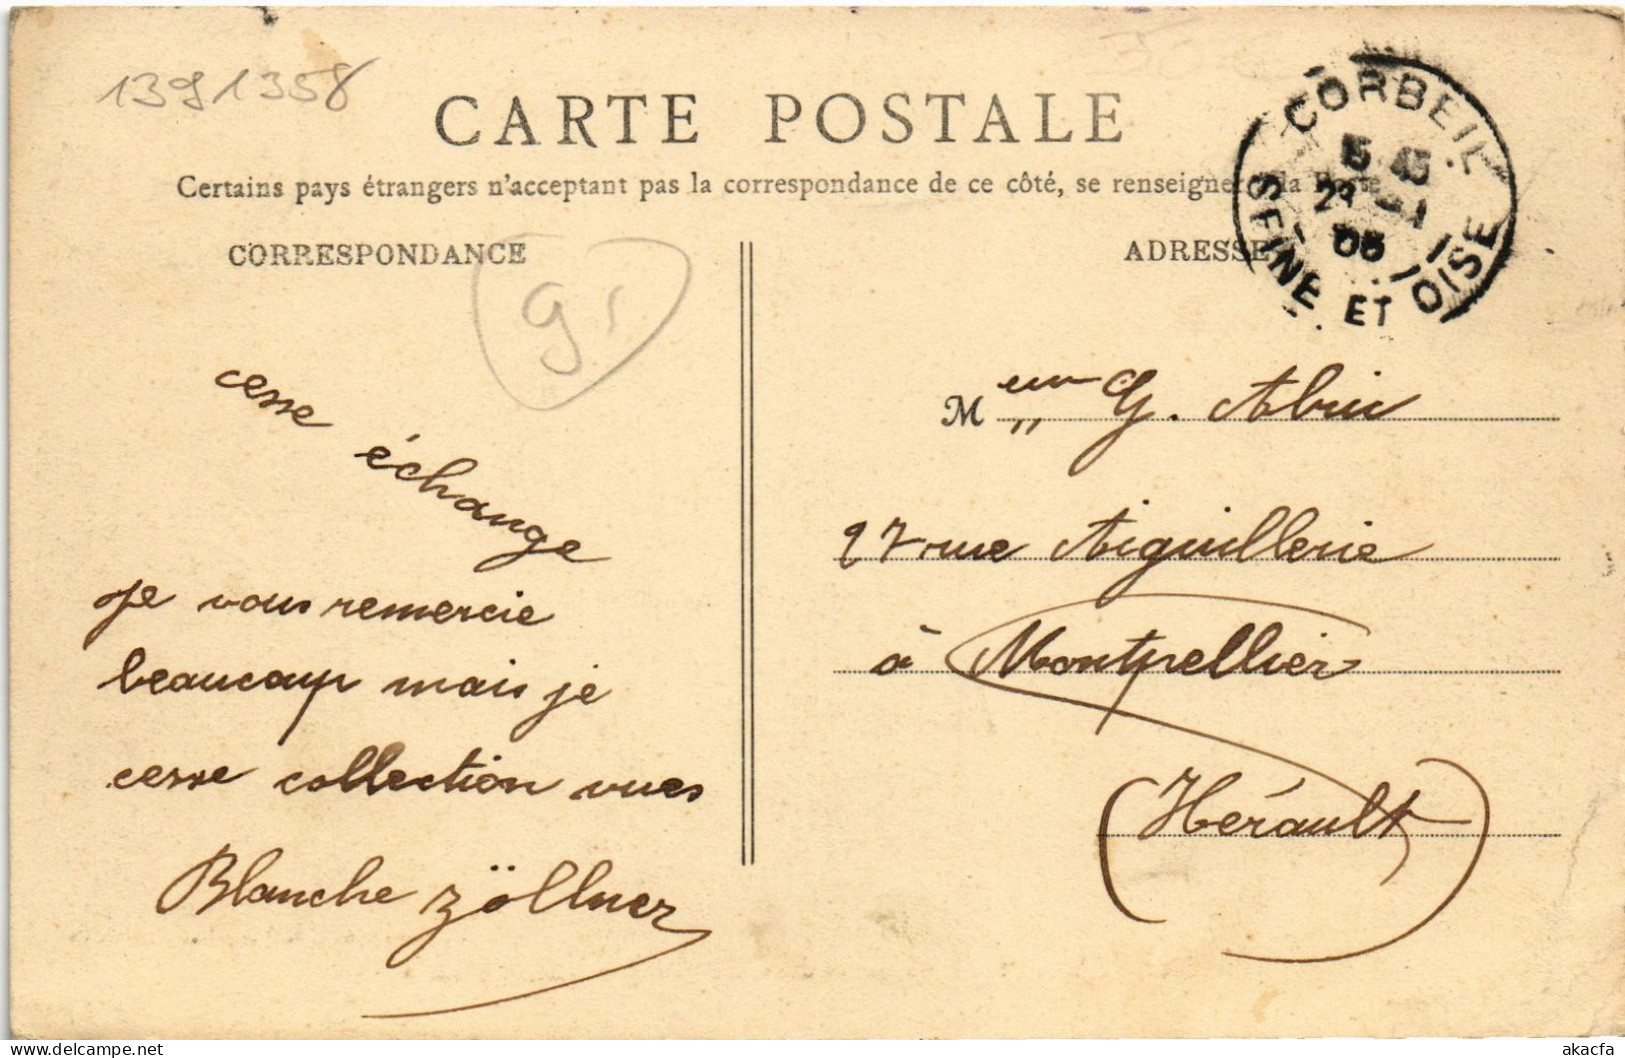 1391358
CARTE POSTALE
Certains pays étrangers n'acceptant pas la correspondance de ce côté, se renseigner à la Poste
CORRESPONDANCE
ADRESSE
CORBEIL
15 45
05
SEINE ET OISE
91
cesse échange
je vous remercie
beaucoup mais je
cesse collection vues
Blanche Zöllner
M G. Abric
27 rue Aiguillerie
à Montpellier
(Hérault)
akacfa